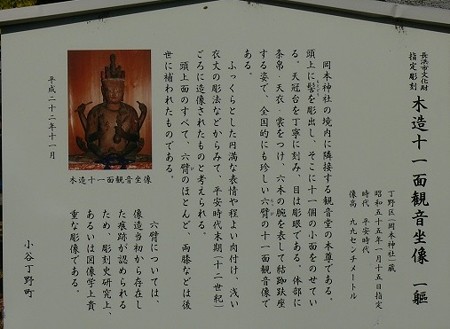 長浜市文化財
指定彫刻
木造十一面観音坐像 一軀
丁野区(岡本神社)蔵
昭和五十五年一月十五日指定
時代 平安時代
像高 九九センチメートル
岡本神社の境内に隣接する観音堂の本尊である。
頭上に髻を彫出し、そこに十一個の小面をのせてい
る。天冠台を丁寧に刻み、目は彫眼である。体部に
条帛・天衣・裳をつけ、六本の腕を表して結跏趺座
する姿で、全国的にも珍しい六臂の十一面観音像で
ある。
ふっくらとした円満な表情や程よい肉付け、浅い
衣文の彫法などからみて、平安時代末期(十二世紀)
ごろに造像されたものと考えられる。
頭上面のすべて、六臂のほとんど、両膝などは後
世に補われたものである。
六臂については、
像造当初から存在し
た痕跡が認められる
ため、彫刻史研究上、
あるいは図像学上貴
重な彫像である。
木造十一面観音坐像
平成二十二年十一月
小谷丁野町